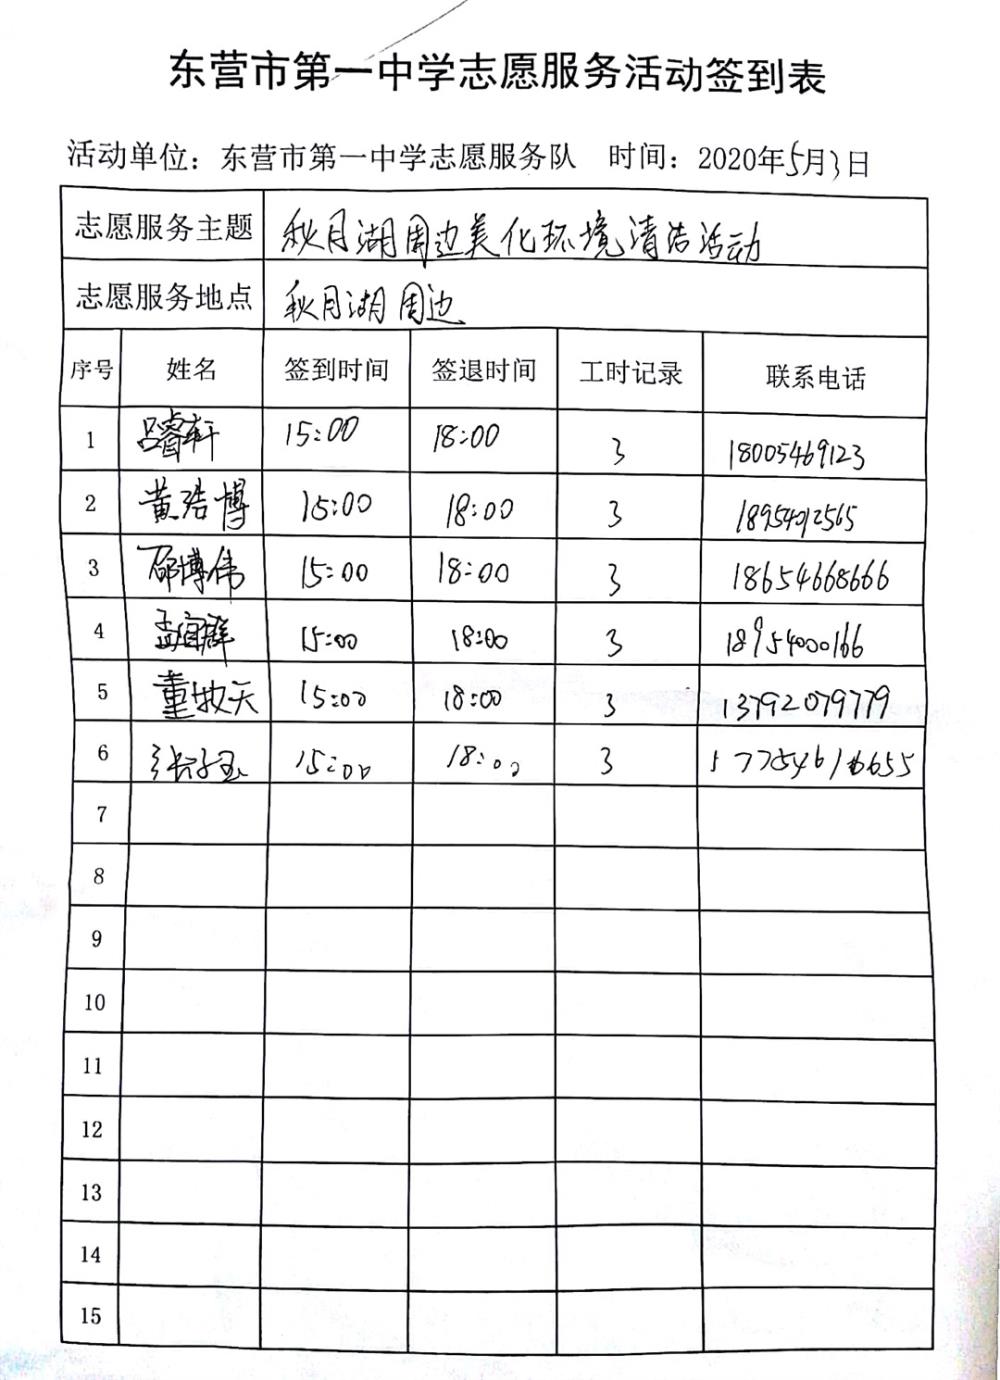 东营市第一中学志愿服务活动签到表
活动单位：东营市第一中学志愿服务队 时间：2020年5月3日
志愿服务主题 秋月湖周边美化环境清洁活动
志愿服务地点 秋月湖周边
序号 姓名 签到时间 签退时间 工时记录 联系电话
1 吕睿轩 15:00 18:00 3 18005469123
2 黄浩博 15:00 18:00 3 18954012565
3 邵博伟 15:00 18:00 3 18654668666
4 孟宿群 15:00 18:00 3 18954000166
5 董牧天 15:00 18:00 3 13792079779
6 张子玉 15:00 18:00 3
7
8
9
10
11
12
13
14
15